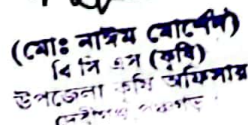 (মোঃ নাঈম মোর্শেদ)
বি সি এস (কৃষি)
উপজেলা কৃষি অফিসার